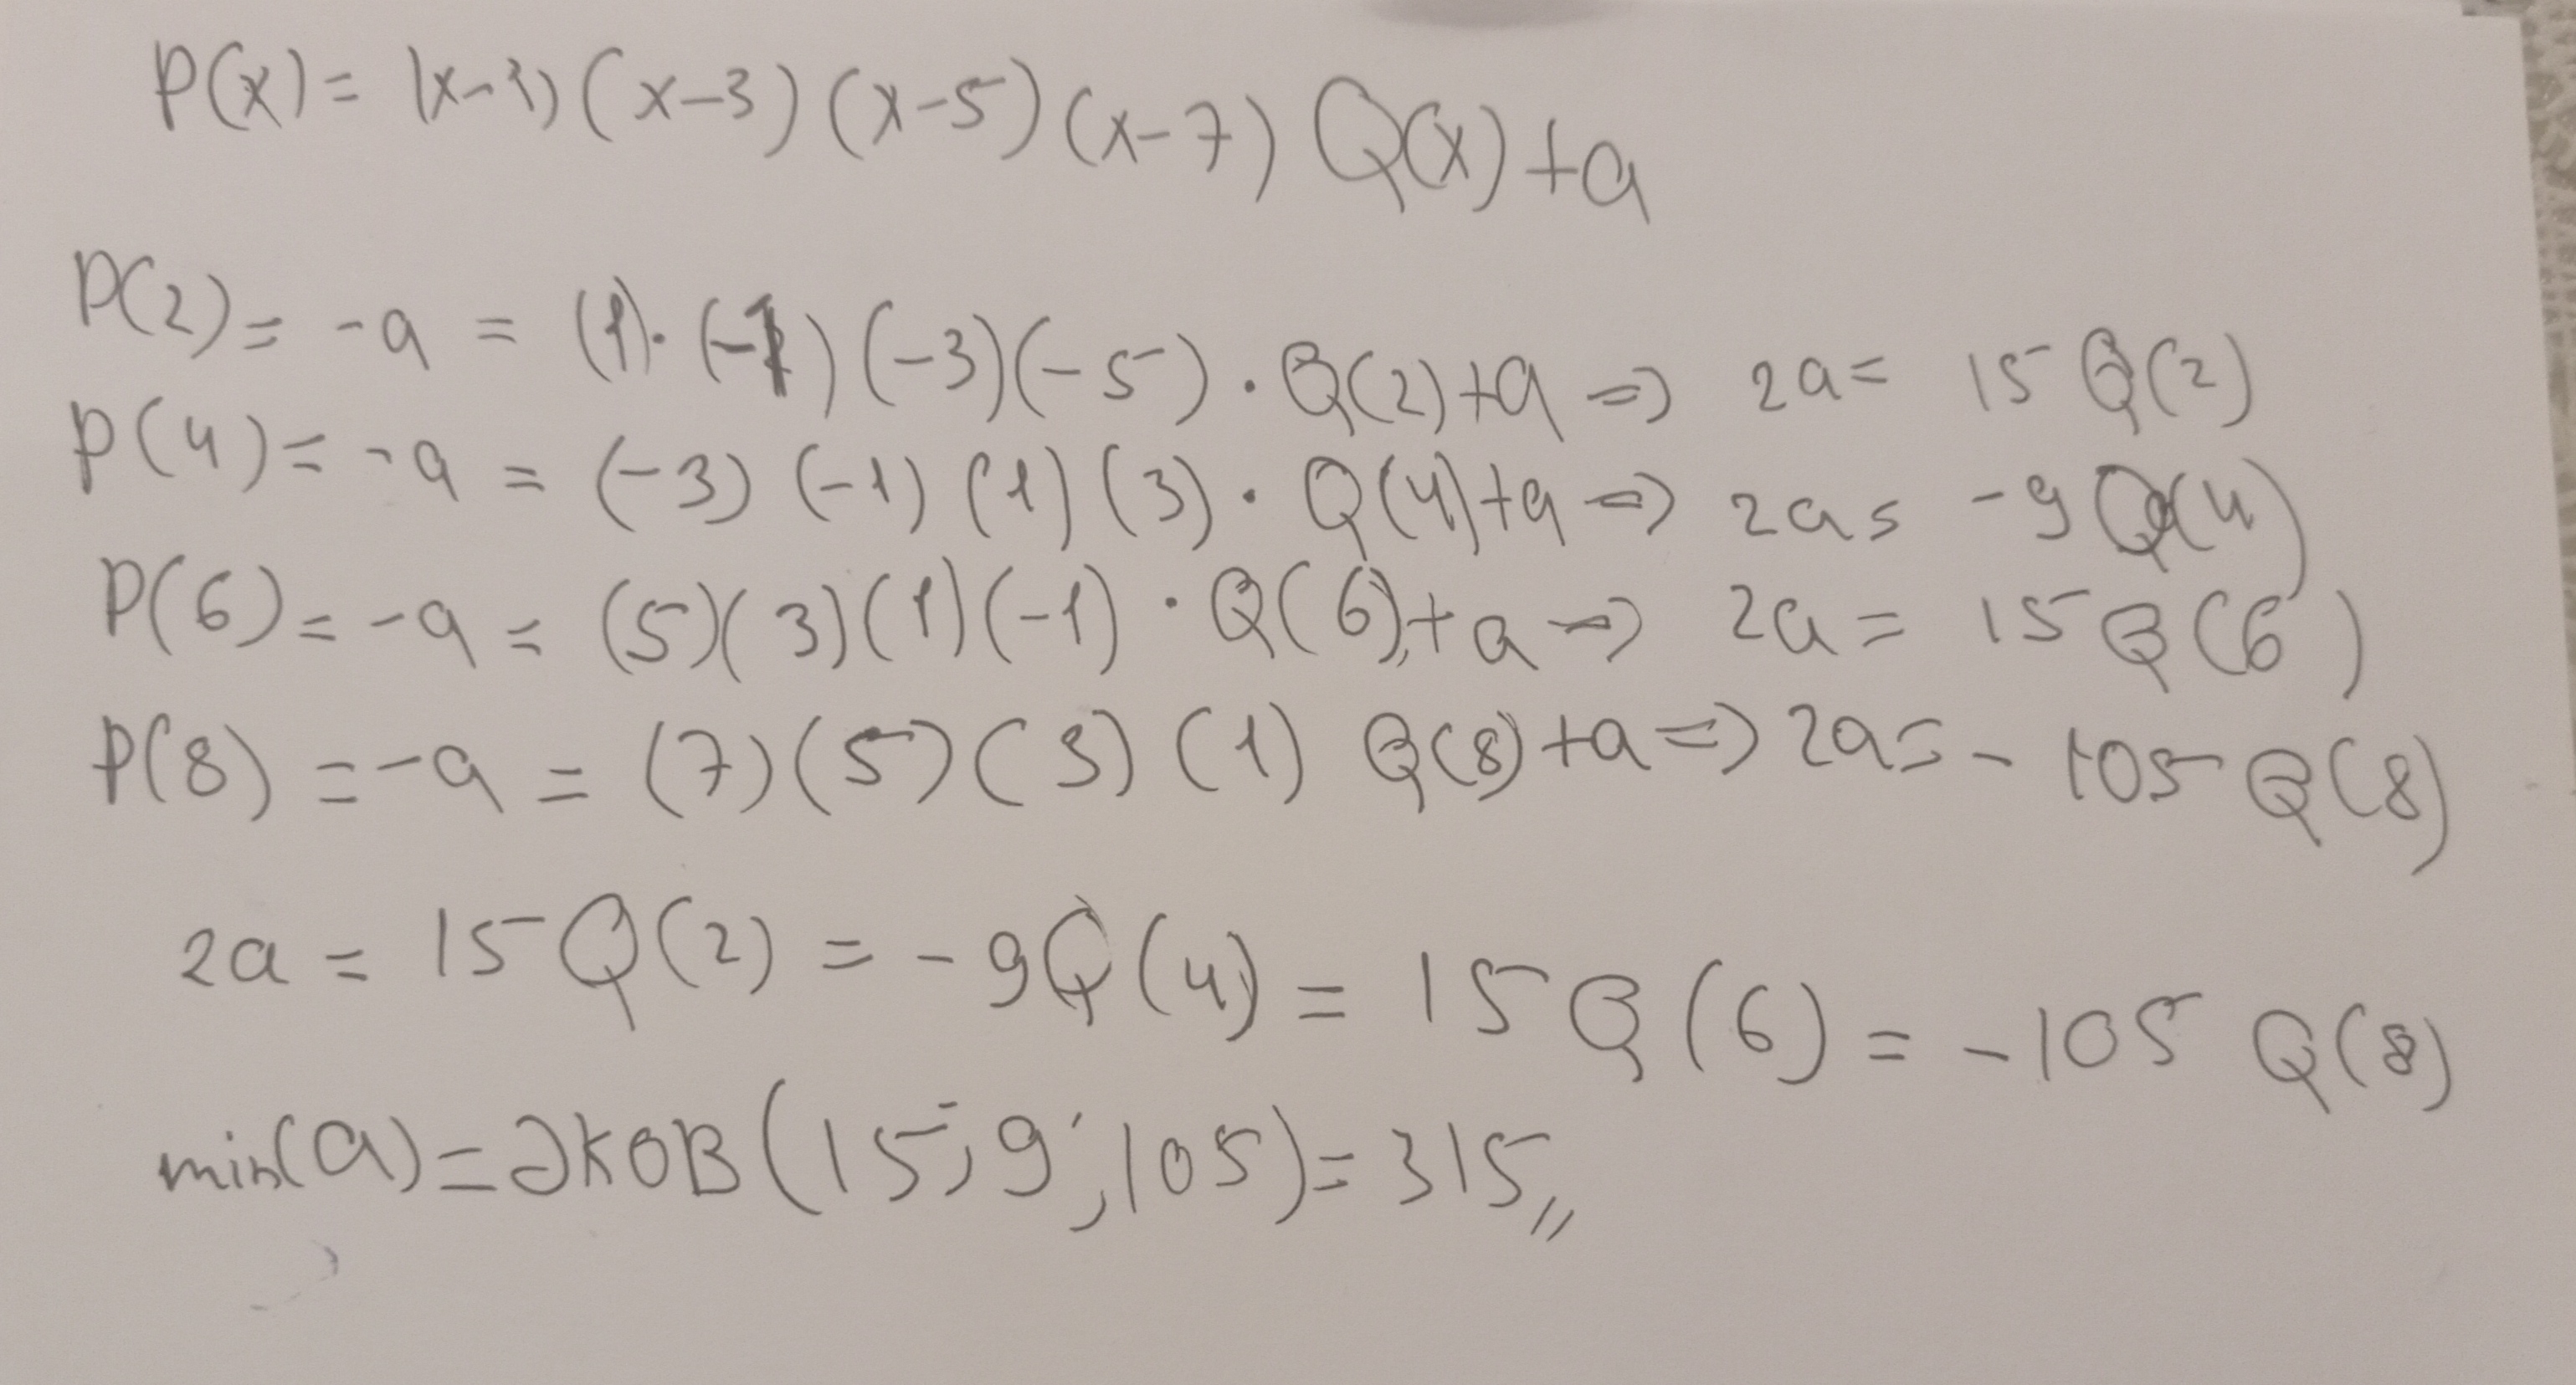 P(x) = (x-1) (x-3) (x-5) (x-7) Q(x) +a
P(2) = -a = (1)·(-1)(-3)(-5)·Q(2)+a => 2a= 15 Q(2)
P(4) = -a = (-3) (-1) (1) (3)· Q(4)+a => 2a= -9 Q(4)
P(6) = -a = (5)(3)(1)(-1)·Q(6)+a => 2a= 15 Q(6)
P(8) = -a = (7)(5)(3)(1) Q(8)+a => 2a= -105 Q(8)
2a = 15 Q(2) = -9Q(4) = 15 Q(6) = -105 Q(8)
min(a) = ƏKOB (15; 9; 105) = 315,,